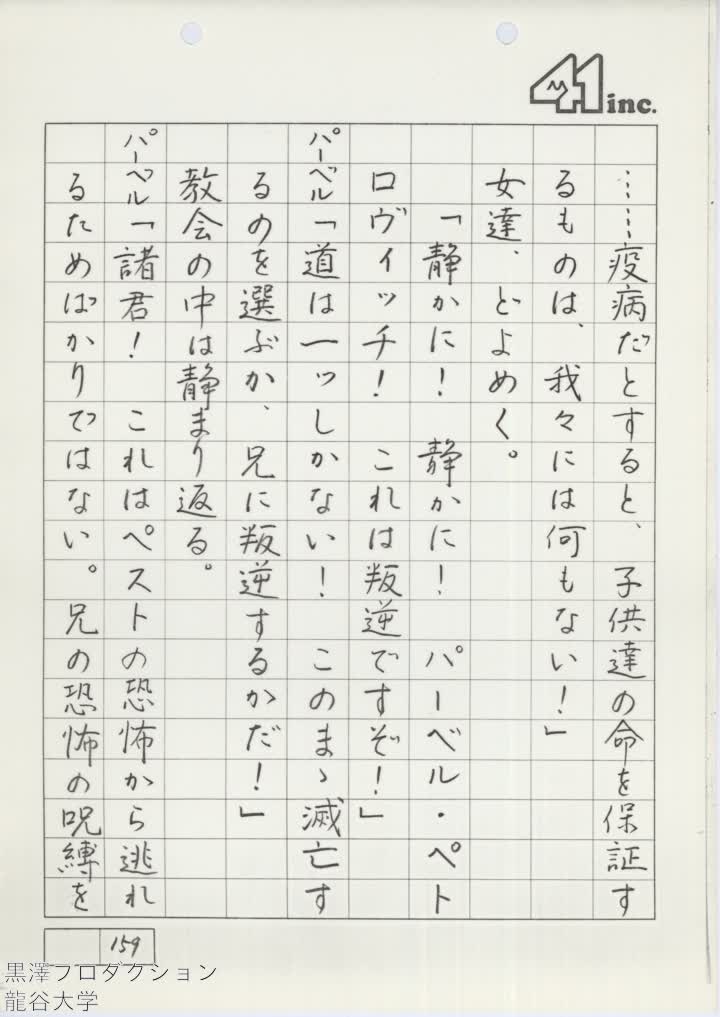 41 inc.
……疫病だとすると、子供達の命を保証す
るものは、我々には何もない！」
女達、どよめく。
「静かに！　静かに！　パーベル・ペト
ロヴィッチ！　これは叛逆ですぞ！」
パーベル「道は一ッしかない！　このまゝ滅亡す
るのを選ぶか、兄に叛逆するかだ！」
教会の中は静まり返る。
パーベル「諸君！　これはペストの恐怖から逃れ
るためばかりではない。兄の恐怖の呪縛を
159
黒澤プロダクション
龍谷大学